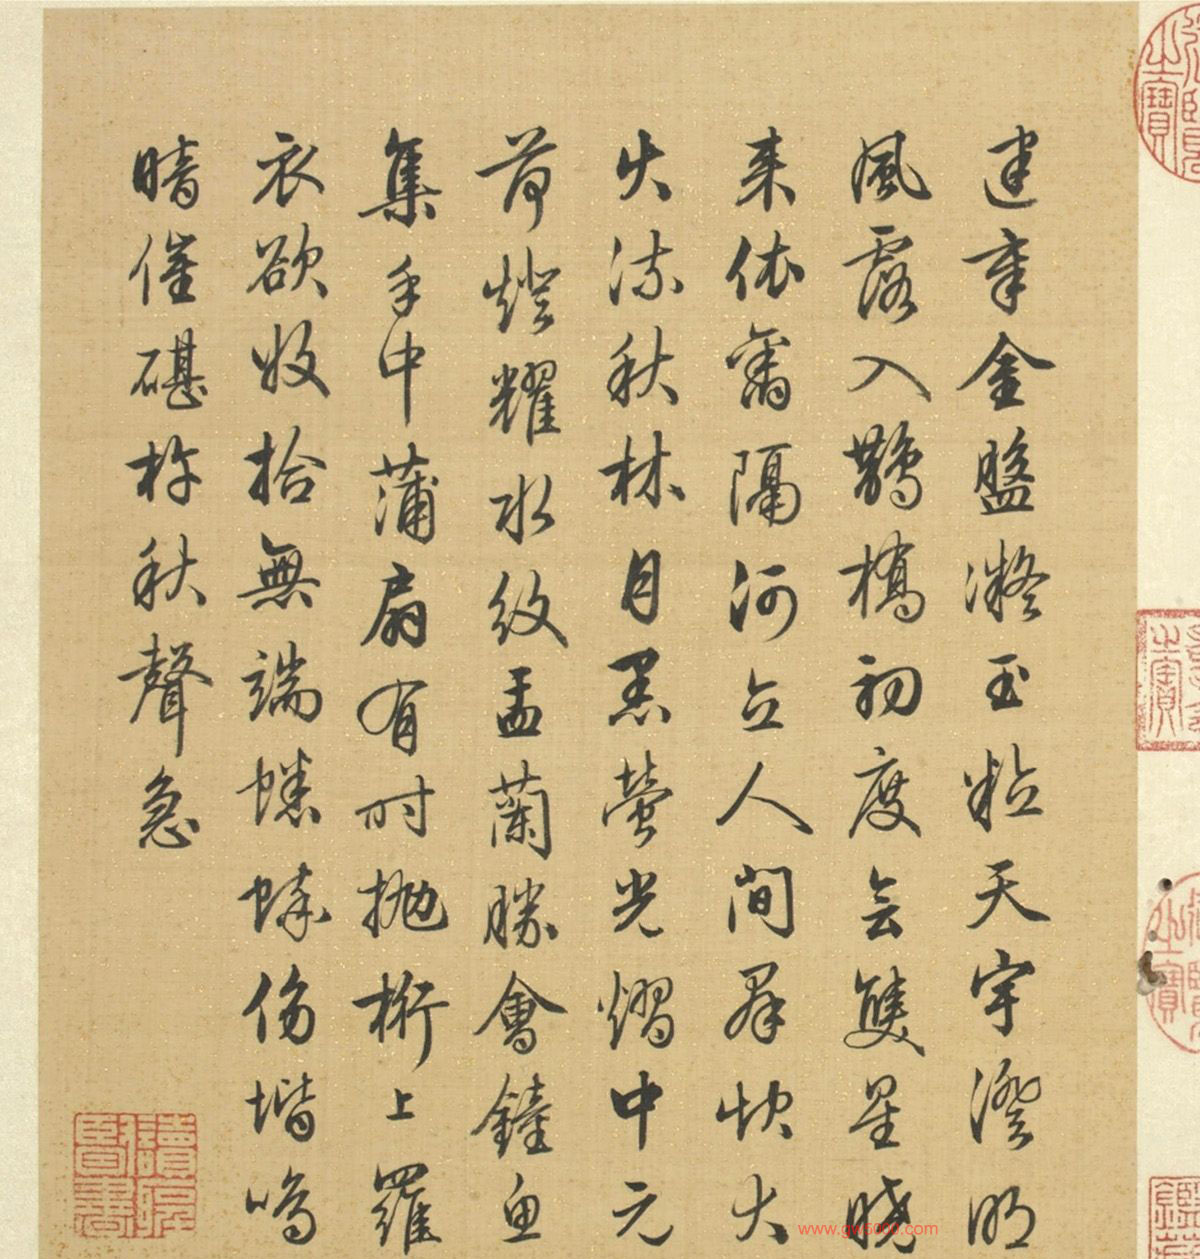 建章金盤凝玉粒天宇澄明
風露入鵲橋初度会雙星曉
来依舊隔河立人间群欣大
火流秋林月黑螢光熠中元
荷燈耀水紋盂蘭勝會鐘魚
集手中蒲扇有时拋桁上羅
衣欲收拾無端蟋蟀傍堦鳴
暗催碪杵秋聲急
www.gw5000.com